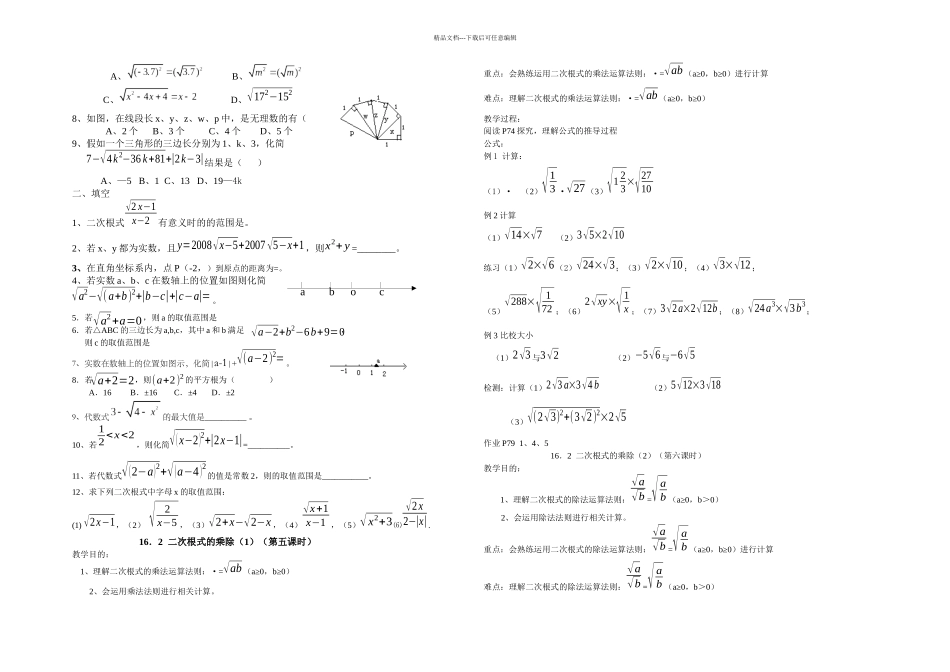 精品文档---下载后可任意编辑
A、√(−3.7)²=(√3.7)² B、√m²=(√m)²
C、√x²−4x+4=x−2 D、√17²−15²
8、如图，在线段长 x、y、z、w、p 中，是无理数的有（
A、2 个 B、3 个 C、4 个 D、5 个
9、假如一个三角形的三边长分别为 1、k、3，化简
7−√4k²−36k+81+|2k−3|结果是（ ）
A、—5 B、1 C、13 D、19—4k
二、填空
1、二次根式 √2x−1/x−2 有意义时的的范围是。
2、若 x、y 都为实数，且y=2008√x−5+2007√5−x+1，则x²+y=________。
3、在直角坐标系内，点 P（-2，）到原点的距离为=。
4、若实数 a、b、c 在数轴上的位置如图则化简
√a²−√(a+b)²+|b−c|+|c−a|=。
a b o c
5．若√a²+a=0，则 a 的取值范围是
6．若△ABC 的三边长为 a,b,c，其中 a 和 b 满足 √a−2+b²−6b+9=0
则 c 的取值范围是
7、实数在数轴上的位置如图示，化简|a-1|+√(a−2)²=。
-1 0 1 2
8．若√a+2=2，则(a+2)²的平方根为（ ）
A．16 B．±16 C．±4 D．±2
9、代数式3−√4−x² 的最大值是__________ 。
10、若1/2<x<2，则化简√(x−2)²+|2x−1|=__________。
11、若代数式√(2−a)²+√(a−4)²的值是常数 2，则的取值范围是___________。
12、求下列二次根式中字母 x 的取值范围：
(1) √2x−1，（2）√2/x−5，（3）√2+x−√2−x，（4）√x+1/x−1，（5）√x²+3⑹√2x/2−|x|．
16．2 二次根式的乘除（1）（第五课时）
教学目的：
1、理解二次根式的乘法运算法则：·=√ab（a≥0，b≥0）
2、会运用乘法法则进行相关计算。
重点：会熟练运用二次根式的乘法运算法则：·=√ab（a≥0，b≥0）进行计算
难点：理解二次根式的乘法运算法则：·=√ab（a≥0，b≥0）
教学过程：
阅读 P74 探究，理解公式的推导过程
公式：
例 1 计算：
（1）· （2）√1/3·√27（3）√1 2/3×√27/10
例 2 计算
（1）√14×√7 （2）3√5×2√10
练习（1）√2×√6（2）√24×√3；（3）√2×√10；（4）√3×√12；
（5）√288×√1/72；（6）2√xy×√1/x；（7）3√2a×2√12b；（8）√24a³×√3b³；
例 3 比校大小
（1）2√3与3√2 （2）−5√6与−6√5
检测：计算（1）2√3a×3√4b （2）5√12×3√18
（3）√(2√3)²+(3√2)²×2√5
作业 P79 1、4、5
16．2 二次根式的乘除（2）（第六课时）
教学目的：
1、理解二次根式的除法运算法则：√a/√b=√a/b（a≥0，b＞0）
2、会运用除法法则进行相关计算。
重点：会熟练运用二次根式的除法运算法则：√a/√b=√a/b（a≥0，b≥0）进行计算
难点：理解二次根式的除法运算法则：√a/√b=√a/b（a≥0，b＞0）